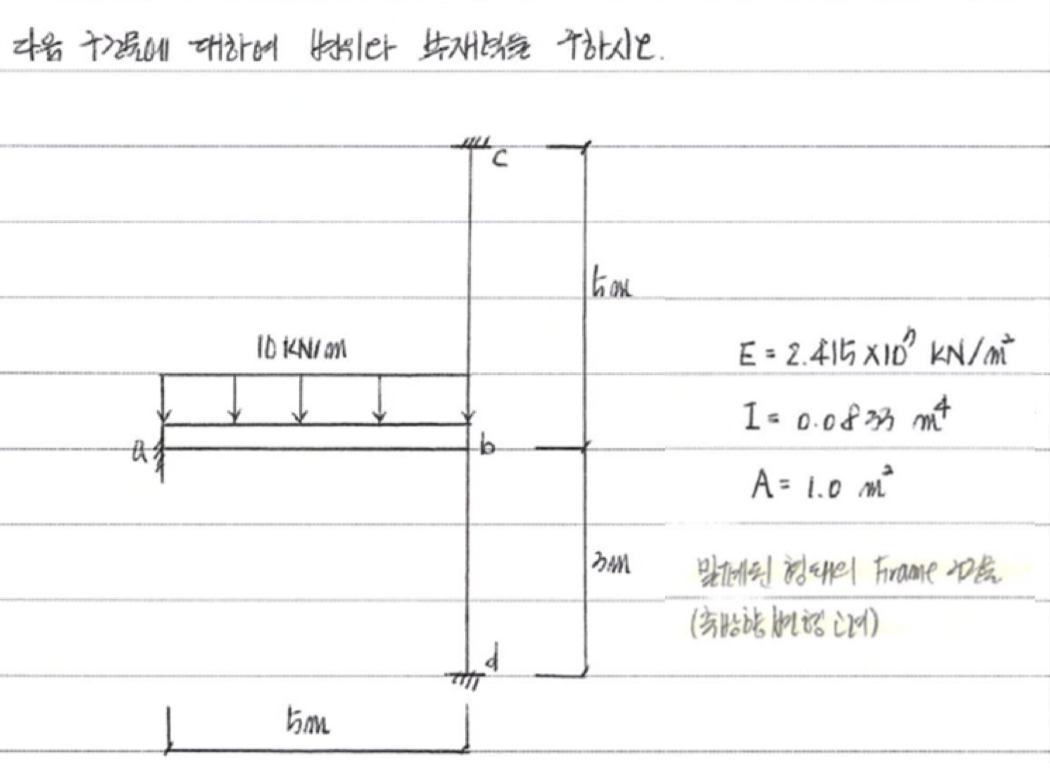 다음 구조물에 대하여 변위와 부재력을 구하시오.
c
5m
10 KN/m
E = 2.415 X10⁷ KN/m²
I = 0.0833 m⁴
a
b
A = 1.0 m²
3m
형태의 Frame 구조물
(축방향 변형 고려)
d
5m